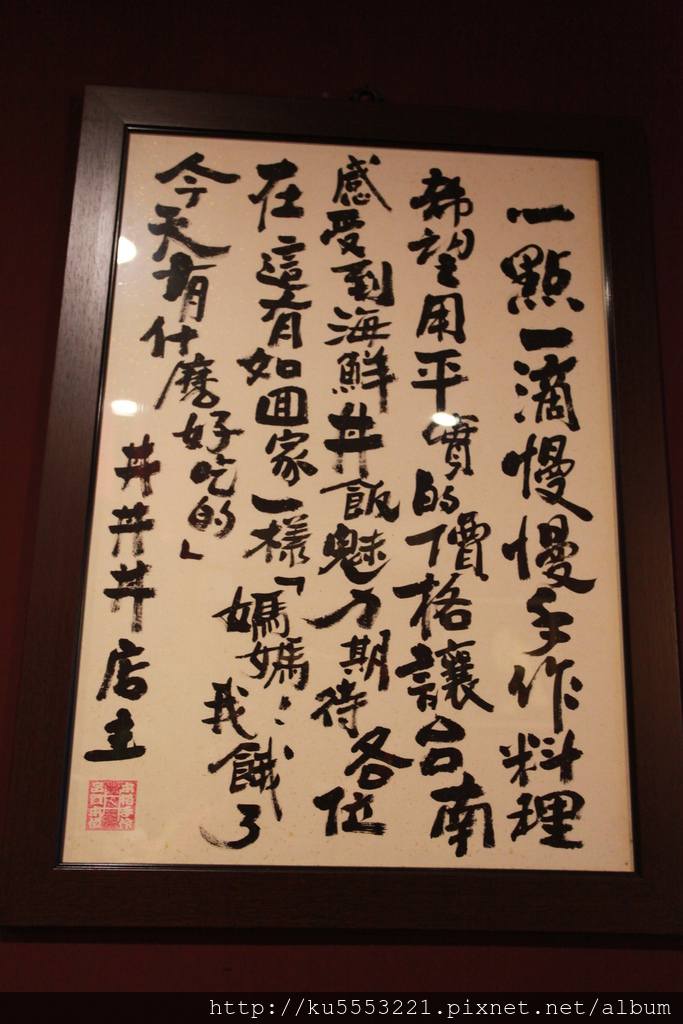 一點一滴慢慢手作料理
希望用平實的價格讓台南
感受到海鮮丼飯魅力期待各位
在這有如回家一樣「媽媽：我餓了
今天有什麼好吃的」
丼丼丼店主
http://ku5553221.pixnet.net/album